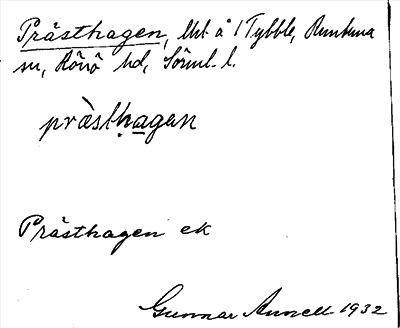 Prästhagen, lht å 1 Tybble, Runtuna
sn, Rönö hd, Söml. l.
prà̈sthagen
Prästhagen ek
Gunnar Annell 1932